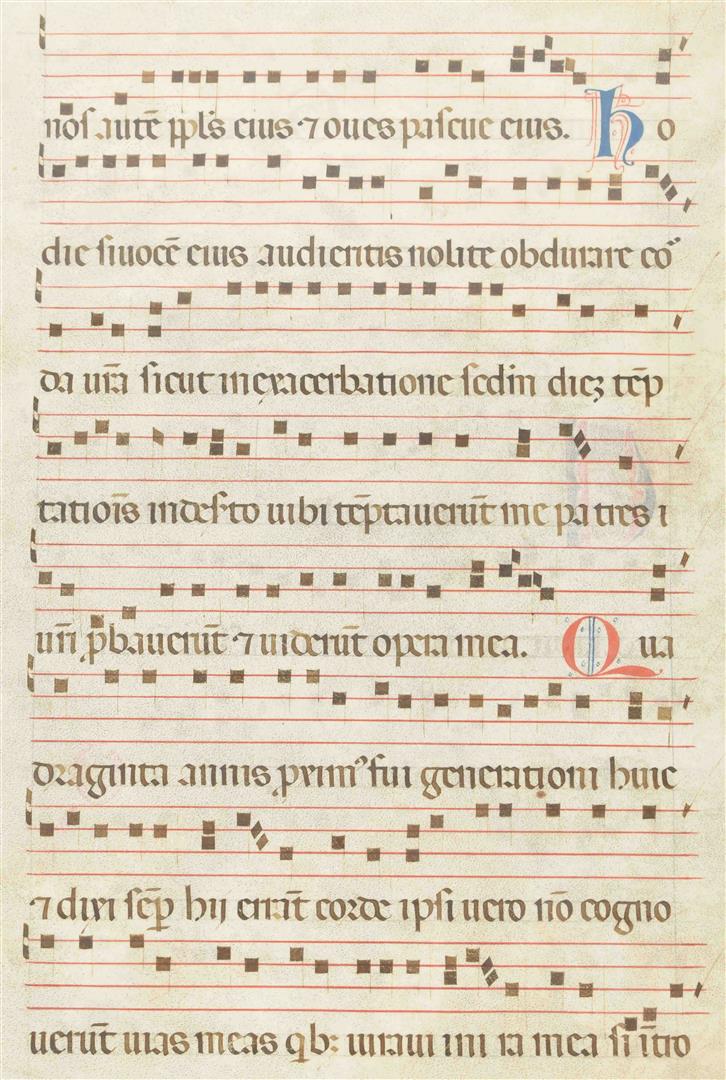 nos autē ppl's eius ⁊ oues pascue eius. Ho
die si uocē eius audieritis nolite obdurare co᷒
da ur̄a sicut in exacerbatione scd'in diez tēp
tatiōis in des͛to ubi tēptauerūt me patres i
ur̄i p̱bauerūt ⁊ uiderūt opera mea. Qua
draginta annis p̱xim᷒ fui generationi huic
⁊ dixi sēp hij errāt corde ipsi uero nō cogno
uerūt uias meas qb: iuraui in ira mea si ītro